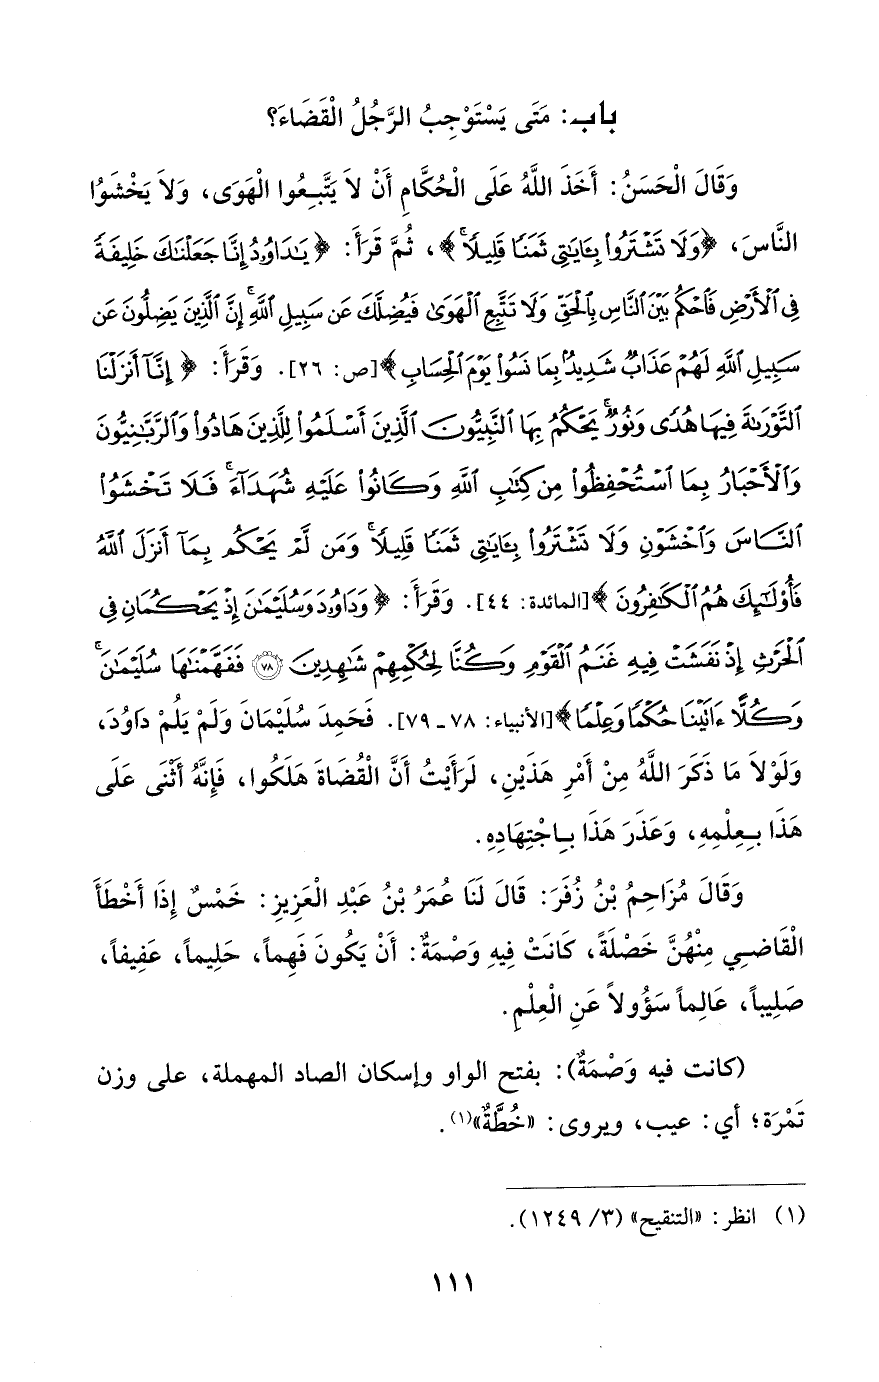 باب: مَتَى يَسْتَوْجِبُ الرَّجُلُ الْقَضَاءَ؟
وَقَالَ الْحَسَنُ: أَخَذَ اللَّهُ عَلَى الْحُكَّامِ أَنْ لاَ يَتَّبِعُوا الْهَوَى، وَلاَ يَخْشَوُا
النَّاسَ، ﴿وَلَا تَشْتَرُوا۟ بِـَٔايَـٰتِى ثَمَنًا قَلِيلًا ۚ﴾، ثُمَّ قَرَأَ: ﴿يَـٰدَاوُۥدُ إِنَّا جَعَلْنَـٰكَ خَلِيفَةً
فِى ٱلْأَرْضِ فَٱحْكُم بَيْنَ ٱلنَّاسِ بِٱلْحَقِّ وَلَا تَتَّبِعِ ٱلْهَوَىٰ فَيُضِلَّكَ عَن سَبِيلِ ٱللَّهِ ۚ إِنَّ ٱلَّذِينَ يَضِلُّونَ عَن
سَبِيلِ ٱللَّهِ لَهُمْ عَذَابٌ شَدِيدٌۢ بِمَا نَسُوا۟ يَوْمَ ٱلْحِسَابِ﴾[ص: ٢٦]. وَقَرَأَ: ﴿إِنَّآ أَنزَلْنَا
ٱلتَّوْرَىٰةَ فِيهَا هُدًى وَنُورٌ ۚ يَحْكُمُ بِهَا ٱلنَّبِيُّونَ ٱلَّذِينَ أَسْلَمُوا۟ لِلَّذِينَ هَادُوا۟ وَٱلرَّبَّـٰنِيُّونَ
وَٱلْأَحْبَارُ بِمَا ٱسْتُحْفِظُوا۟ مِن كِتَـٰبِ ٱللَّهِ وَكَانُوا۟ عَلَيْهِ شُهَدَآءَ ۚ فَلَا تَخْشَوُا۟
ٱلنَّاسَ وَٱخْشَوْنِ وَلَا تَشْتَرُوا۟ بِـَٔايَـٰتِى ثَمَنًا قَلِيلًا ۚ وَمَن لَّمْ يَحْكُم بِمَآ أَنزَلَ ٱللَّهُ
فَأُو۟لَـٰٓئِكَ هُمُ ٱلْكَـٰفِرُونَ﴾[المائدة: ٤٤]. وَقَرَأَ: ﴿وَدَاوُۥدَ وَسُلَيْمَـٰنَ إِذْ يَحْكُمَانِ فِى
ٱلْحَرْثِ إِذْ نَفَشَتْ فِيهِ غَنَمُ ٱلْقَوْمِ وَكُنَّا لِحُكْمِهِمْ شَـٰهِدِينَ ۝٧٨ فَفَهَّمْنَـٰهَا سُلَيْمَـٰنَ ۚ
وَكُلًّا ءَاتَيْنَا حُكْمًا وَعِلْمًا﴾[الأنبياء: ٧٨ ـ ٧٩]. فَحَمِدَ سُلَيْمَانَ وَلَمْ يَلُمْ دَاوُدَ،
وَلَوْلاَ مَا ذَكَرَ اللَّهُ مِنْ أَمْرِ هَذَيْنِ، لَرَأَيْتُ أَنَّ الْقُضَاةَ هَلَكُوا، فَإِنَّهُ أَثْنَى عَلَى
هَذَا بِعِلْمِهِ، وَعَذَرَ هَذَا بِاجْتِهَادِهِ.
وَقَالَ مُزَاحِمُ بْنُ زُفَرَ: قَالَ لَنَا عُمَرُ بْنُ عَبْدِ الْعَزِيزِ: خَمْسٌ إِذَا أَخْطَأَ
الْقَاضِي مِنْهُنَّ خَصْلَةً، كَانَتْ فِيهِ وَصْمَةٌ: أَنْ يَكُونَ فَهِماً، حَلِيماً، عَفِيفاً،
صَلِيباً، عَالِماً سَؤُولاً عَنِ الْعِلْمِ.
(كانت فيه وَصْمَةٌ): بفتح الواو وإسكان الصاد المهملة، على وزن
تَمْرَة؛ أي: عيب، ويروى: «خُطَّةٌ»(١).
(١) انظر: «التنقيح» (٣/ ١٢٤٩).
١١١